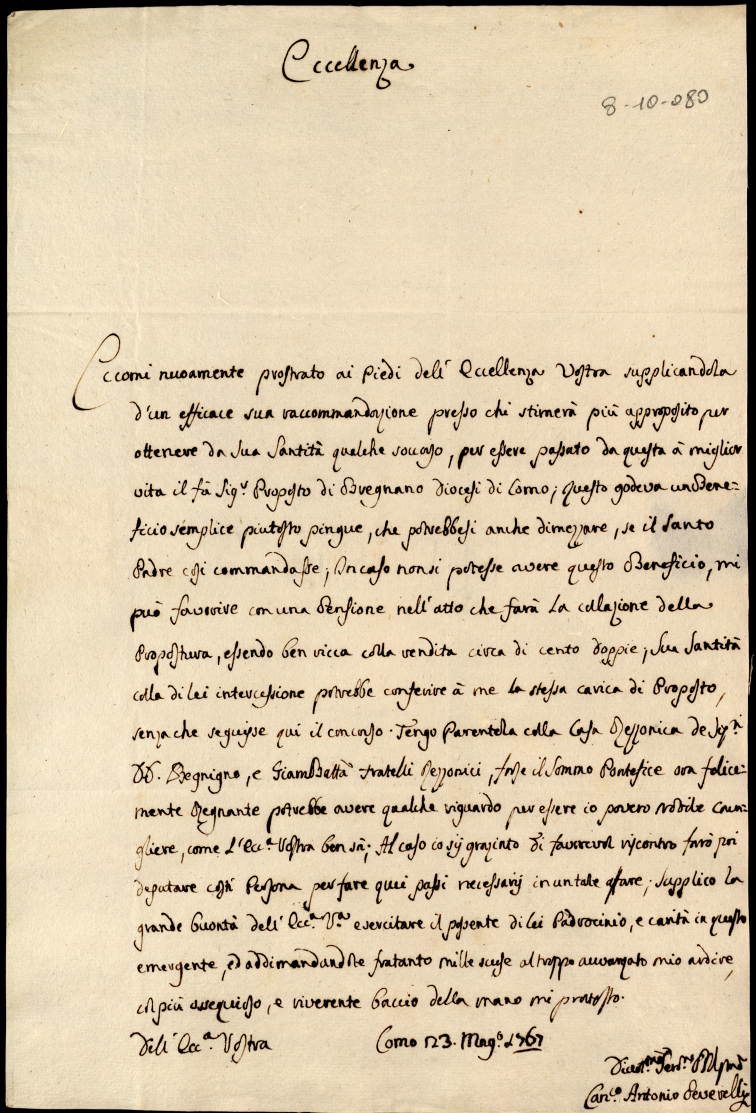 Eccellenza
8-10-080
Eccomi nuovamente prostrato ai Piedi dell' Eccellenza Vostra supplicandola
d'un efficace sua raccommandazione presso chi stimerà più approposito per
ottenere da Sua Santità qualche soccorso, per essere passato da questa à miglior
vita il fù Sigr Proposto di Bregnano Diocesi di Como; Questo godeva un Bene-
ficio semplice piutosto pingue, che potrebbesi anche dimezzare, se il Santo
Padre così commandasse; In caso non si potesse avere questo Beneficio, mi
può favorire con una Pensione nell'atto che farà la collazione della
Propostura, essendo ben ricca colla rendita circa di cento doppie; Sua Santità
colla di lei intercessione potrebbe conferire à me la stessa carica di Proposto,
senza che seguisse qui il concorso. Tengo Parentela colla Casa Rezzonica de Sigri
DD. Begnigno, e GiamBatta Fratelli Rezzonici, forse il Sommo Pontefice ora felice-
mente Regnante potrebbe avere qualche riguardo per essere io povero Nobile
come l'Ecca Vostra ben sà; Al caso io sij graziato di favorevol riscontro farò poi
deputare costì Persona per fare quei passi necessarij in un tale affare; supplico la
grande buontà dell' Ecca Va esercitare il possente di lei Padrocinio, e carità in questo
emergente, ed addimandandole fratanto mille scuse al troppo avvanzato mio ardire,
col più ossequioso, e riverente baccio della mano mi protesto.
Dell' Ecca Vostra
Como 23. Maggo 1767
Antonio